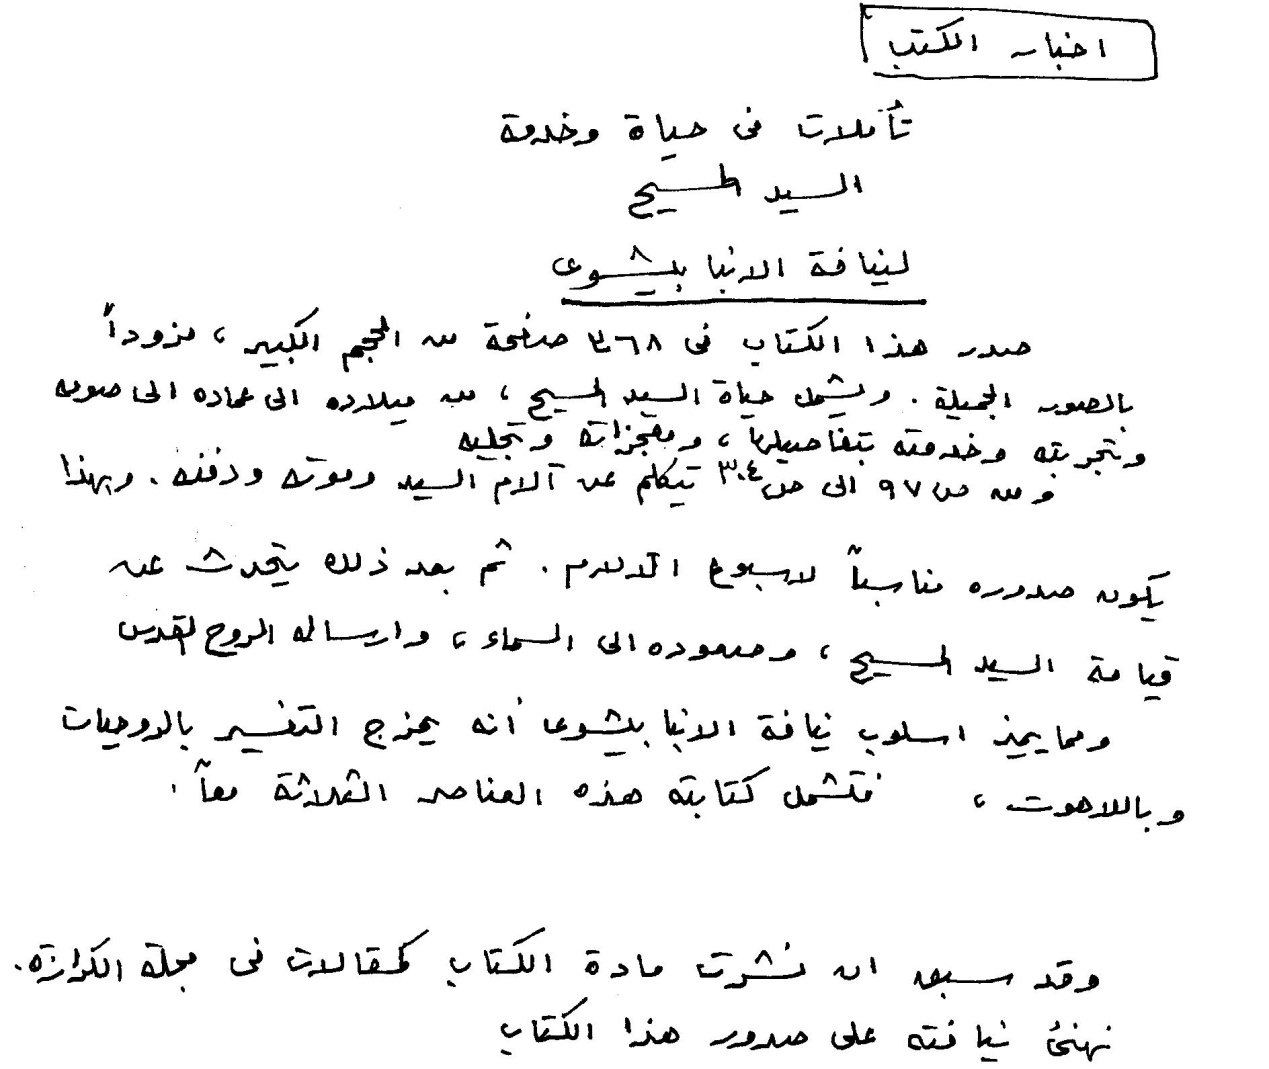 اخبار الكتب
تأملات فى حياة وخدمة
السيد المسيح
لنيافة الانبا بيشوى
صدر هذا الكتاب فى ٣٦٨ صفحة من الحجم الكبير ، مزوداً
بالصور الجميلة . ويشمل حياة السيد المسيح ، من ميلاده الى عماده الى صومه
وتجربته وخدمته بتفاصيلها ، ومعجزاته وتجليه
ومن ص ٩٧ الى ص ٣٠٤ تيكلم عن آلام السيد وموته ودفنه . وبهذا
يكون صدوره مناسباً لاسبوع الآلام . ثم بعد ذلك يتحدث عن
قيامة السيد المسيح ، وصعوده الى السماء ، وارساله الروح القدس
ومما يميز اسلوب نيافة الانبا بيشوى أنه يمزج التفسير بالروحيات
وباللاهوت ، فتشمل كتابته هذه العناصر الثلاثة معاً .
وقد سبق ان نشرت مادة الكتاب كمقالات فى مجلة الكرازة .
نهنئ نيافته على صدور هذا الكتاب